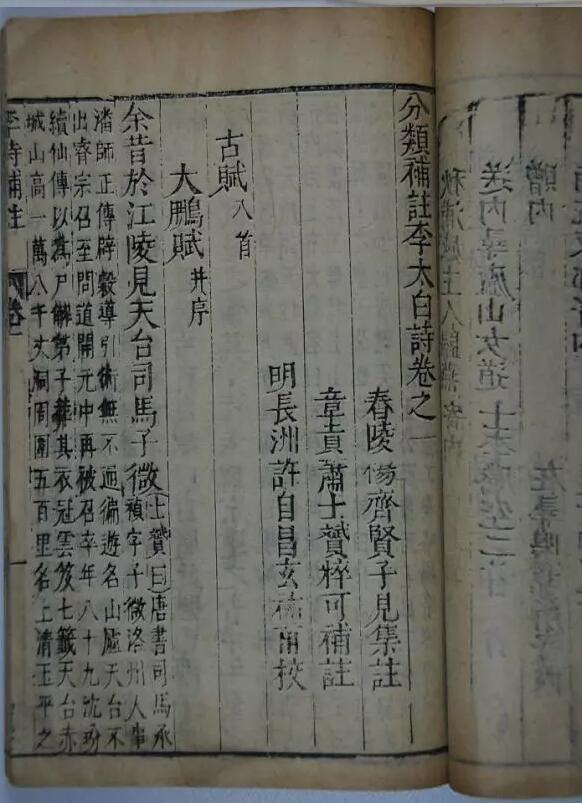 分類補註李太白詩卷之一
舂陵楊齊賢子見集註
章貢蕭士贇粹可補註
明長洲許自昌玄祐甫校
古賦八首
大鵬賦并序
余昔於江陵見天台司馬子微士贇曰唐書司馬承
禎字子微洛州人事
潘師正傳辟穀導引術無不通徧遊名山廬天台不
出睿宗召至問道開元中再被召卒年八十九沈玢
續仙傳以為尸解弟子葬其衣冠雲笈七籤天台赤
城山高一萬八千丈洞周圍五百里名上清玉平之
李詩補註 卷一 一